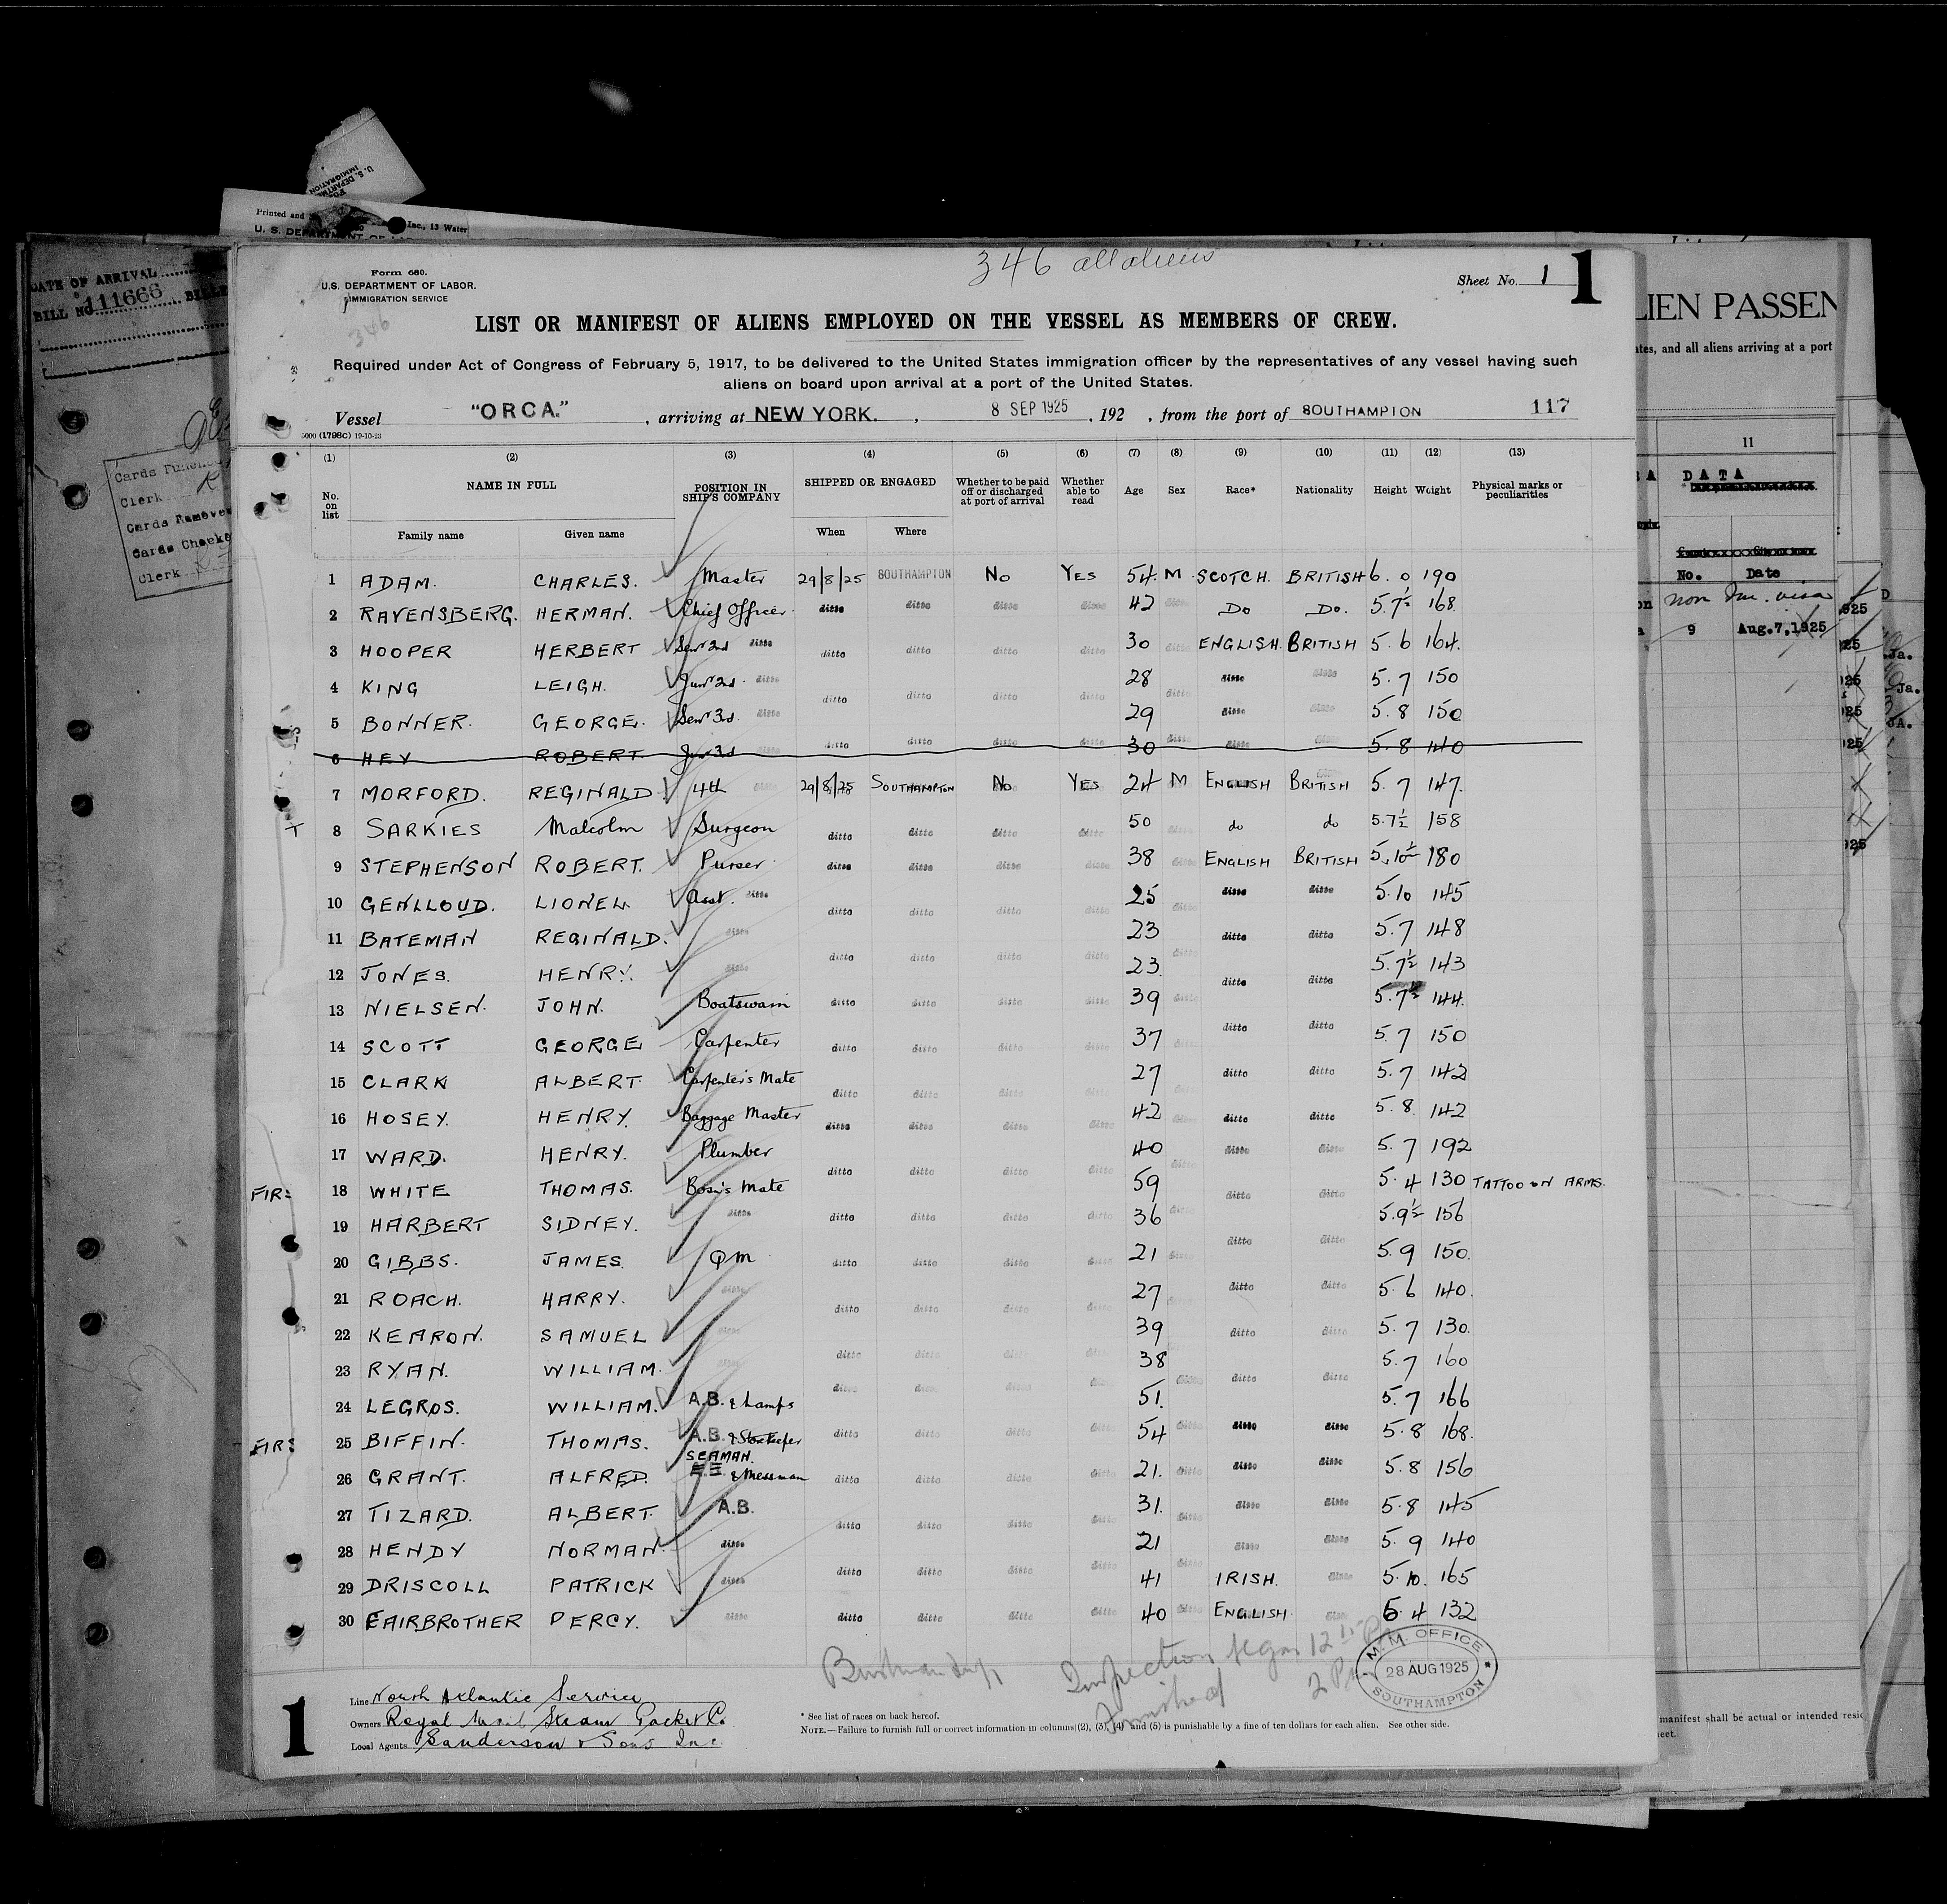 U. S. DEPARTMENT
IMMIGRATION
Printed and
Inc., 13 Water
U. S. DEPARTMENT OF LAB
DATE OF ARRIVAL
BILL No. 111666
Cards Punched
Clerk
Cards Removed
Cards Checked
Clerk
346 all aliens
Form 680.
U.S. DEPARTMENT OF LABOR.
IMMIGRATION SERVICE
346
Sheet No. 1
1
LIST OR MANIFEST OF ALIENS EMPLOYED ON THE VESSEL AS MEMBERS OF CREW.
Required under Act of Congress of February 5, 1917, to be delivered to the United States immigration officer by the representatives of any vessel having such
aliens on board upon arrival at a port of the United States.
Vessel "ORCA." , arriving at NEW YORK. , 8 SEP 1925 , 192 , from the port of SOUTHAMPTON 117
5000 (1798C) 19-10-23
(1) (2) (3) (4) (5) (6) (7) (8) (9) (10) (11) (12) (13)
No. on list NAME IN FULL POSITION IN SHIP'S COMPANY SHIPPED OR ENGAGED Whether to be paid off or discharged at port of arrival Whether able to read Age Sex Race* Nationality Height Weight Physical marks or peculiarities
Family name Given name When Where
1 ADAM. CHARLES. Master 29/8/25 SOUTHAMPTON No YES 54. M. SCOTCH. BRITISH 6. 0 190
2 RAVENSBERG. HERMAN. Chief Officer ditto ditto ditto ditto 42 ditto Do Do. 5.7½ 168.
3 HOOPER HERBERT Senr 2nd ditto ditto ditto ditto ditto 30 ditto ENGLISH. BRITISH 5. 6 164.
4 KING LEIGH. Junr 2nd. ditto ditto ditto ditto ditto 28 ditto ditto ditto 5. 7 150
5 BONNER. GEORGE. Senr 3rd. ditto ditto ditto ditto ditto 29 ditto ditto ditto 5. 8 150
6 HEY ROBERT. Junr 3rd ditto 30 ditto ditto 5. 8 140
7 MORFORD. REGINALD. 4th ditto 29/8/25 SOUTHAMPTON No YES 24 M ENGLISH BRITISH 5. 7 147.
8 SARKIES Malcolm Surgeon ditto ditto ditto ditto 50 ditto do do 5.7½ 158
9 STEPHENSON ROBERT. Purser ditto ditto ditto ditto 38 ditto ENGLISH BRITISH 5.10½ 180
10 GENLLOUD. LIONEL Asst. ditto ditto ditto ditto ditto 25 ditto ditto ditto 5.10 145
11 BATEMAN REGINALD. ditto ditto ditto ditto ditto 23 ditto ditto ditto 5.7 148
12 JONES. HENRY. ditto ditto ditto ditto ditto 23. ditto ditto 5.7½ 143
13 NIELSEN. JOHN. Boatswain ditto ditto ditto ditto 39 ditto ditto ditto 5.7½ 144.
14 SCOTT GEORGE Carpenter ditto ditto ditto ditto 37 ditto ditto ditto 5. 7 150
15 CLARK ALBERT. Carpenter's Mate ditto ditto ditto ditto 27 ditto ditto ditto 5. 7 142
16 HOSEY. HENRY. Baggage Master ditto ditto ditto ditto 42 ditto ditto ditto 5. 8. 142
17 WARD. HENRY. Plumber ditto ditto ditto ditto 40 ditto ditto ditto 5. 7 192
FIR: 18 WHITE THOMAS. Bosn's Mate 59 ditto ditto 5. 4 130 TATTOO ON ARMS.
19 HARBERT SIDNEY. ditto ditto ditto ditto ditto 36 ditto ditto ditto 5.9½ 156
20 GIBBS. JAMES. QM ditto ditto ditto ditto 21 ditto 5. 9 150.
21 ROACH. HARRY. ditto ditto ditto ditto ditto 27 ditto ditto 5. 6 140.
22 KEARON. SAMUEL ditto ditto ditto ditto ditto 39 ditto ditto 5. 7 130.
23 RYAN. WILLIAM. ditto ditto ditto ditto ditto 38 ditto ditto ditto 5. 7 160
24 LEGROS. WILLIAM. A.B. & Lamps 51. 5. 7 166
FIR: 25 BIFFIN. THOMAS. A.B. & Storekeeper ditto ditto ditto ditto 54 ditto ditto ditto 5. 8 168.
26 GRANT. ALFRED. SEAMAN. & Messman ditto ditto ditto ditto 21. ditto ditto ditto 5. 8 156
27 TIZARD. ALBERT. A.B. ditto ditto ditto ditto 31. ditto ditto ditto 5. 8 145
28 HENDY NORMAN. ditto 21 ditto ditto 5. 9 140
29 DRISCOLL PATRICK ditto ditto ditto ditto ditto 41 ditto IRISH. ditto 5. 10. 165
30 FAIRBROTHER PERCY. ditto ditto ditto ditto ditto 40 ditto ENGLISH. ditto 5. 4 132
Inspection began 12
finished 2 PM
M. M. OFFICE
28 AUG 1925
SOUTHAMPTON
1
Line North Atlantic Service
Owners Royal Mail Steam Packet Co.
Local Agents Sanderson & Sons Inc.
* See list of races on back hereof.
NOTE.—Failure to furnish full or correct information in columns (2), (3), (4) and (5) is punishable by a fine of ten dollars for each alien. See other side.
LIEN PASSEN
ates, and all aliens arriving at a port
11
DATA
No. Date
non Im. visa
9 Aug.7,1925
Ja.
Ja.
JA.
manifest shall be actual or intended resid